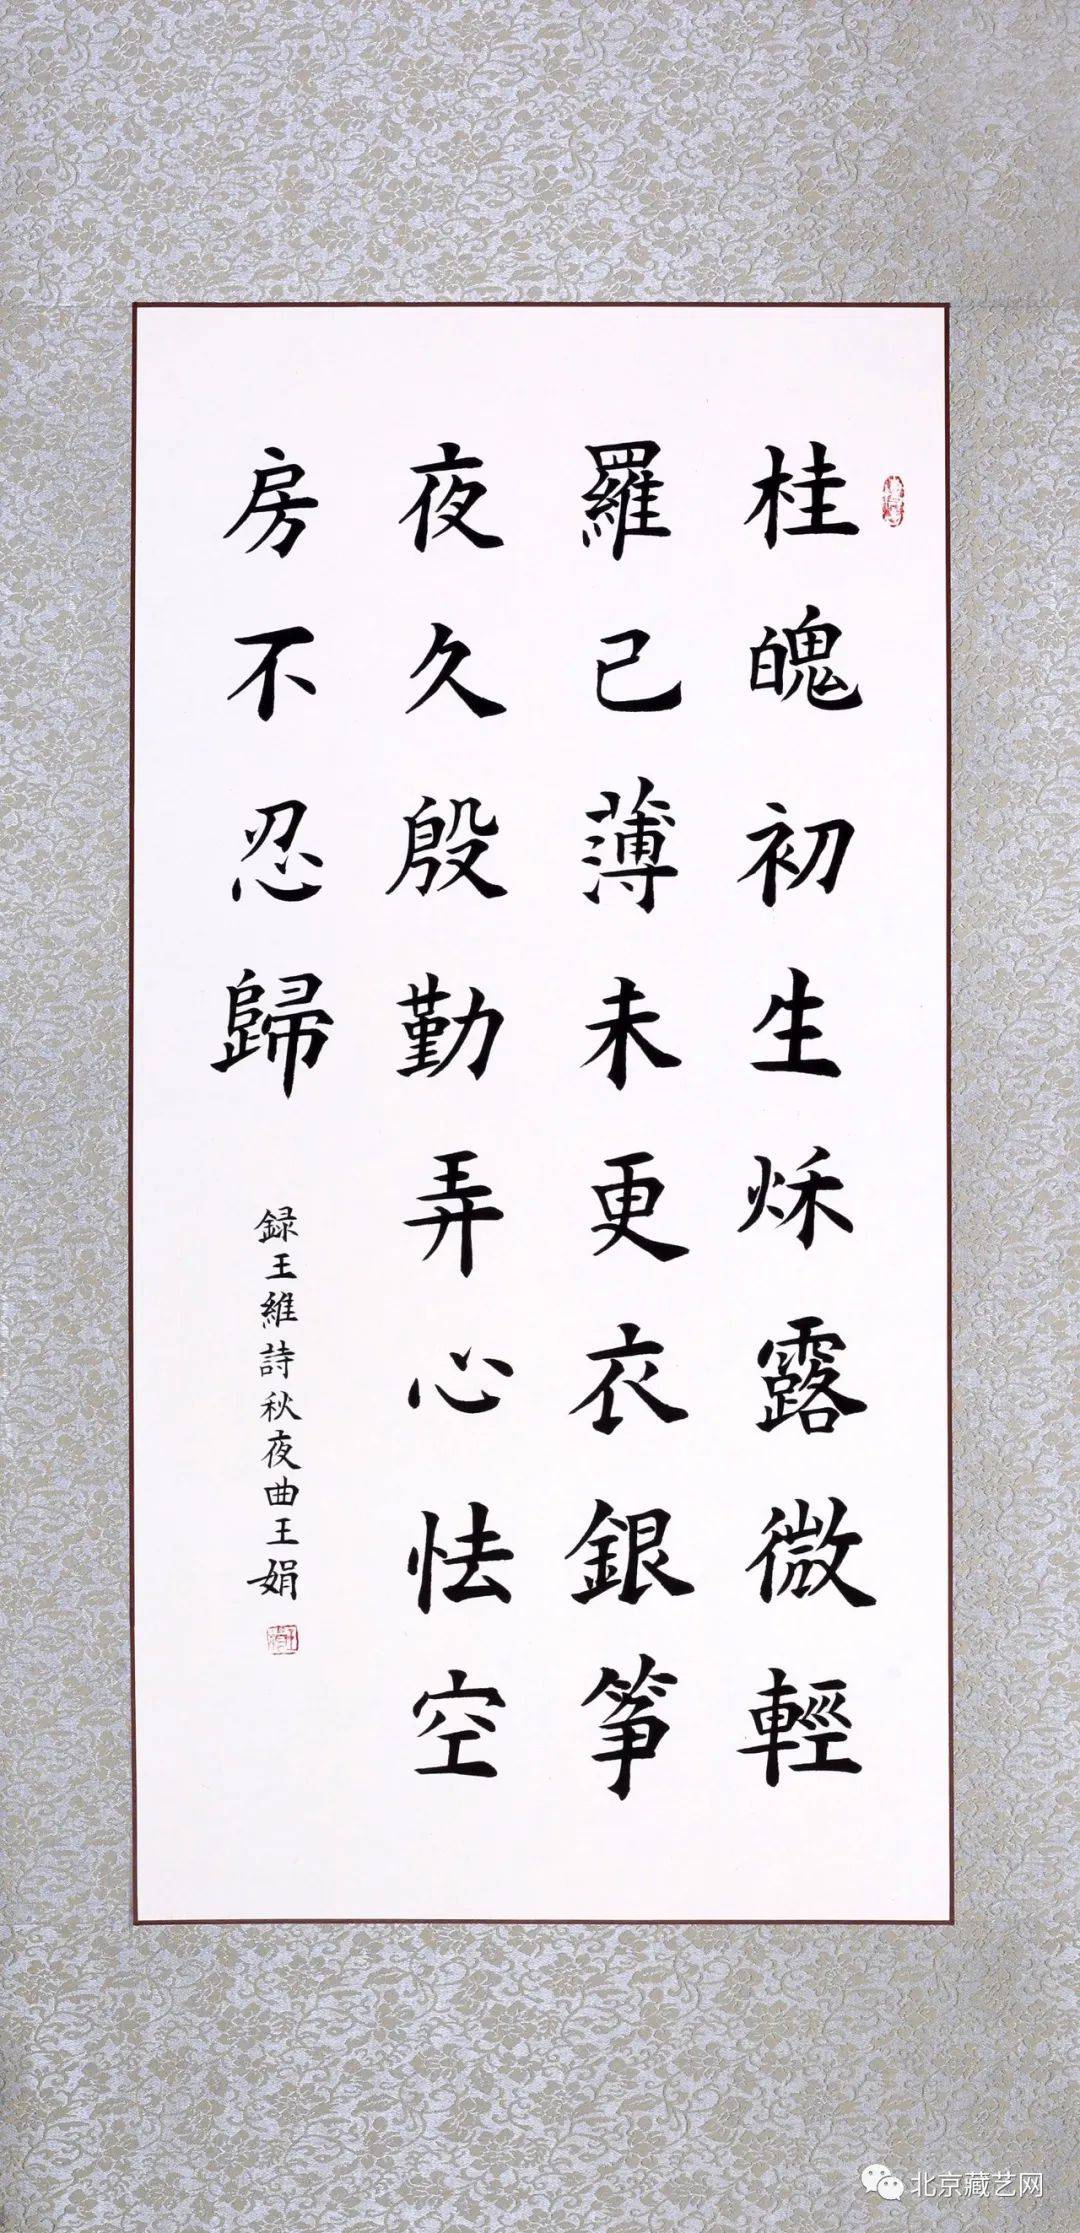 桂魄初生烁露微輕
羅己薄未更衣銀筝
夜久殷勤弄心怯空
房不忍歸
録王維詩秋夜曲王娟
北京藏艺网